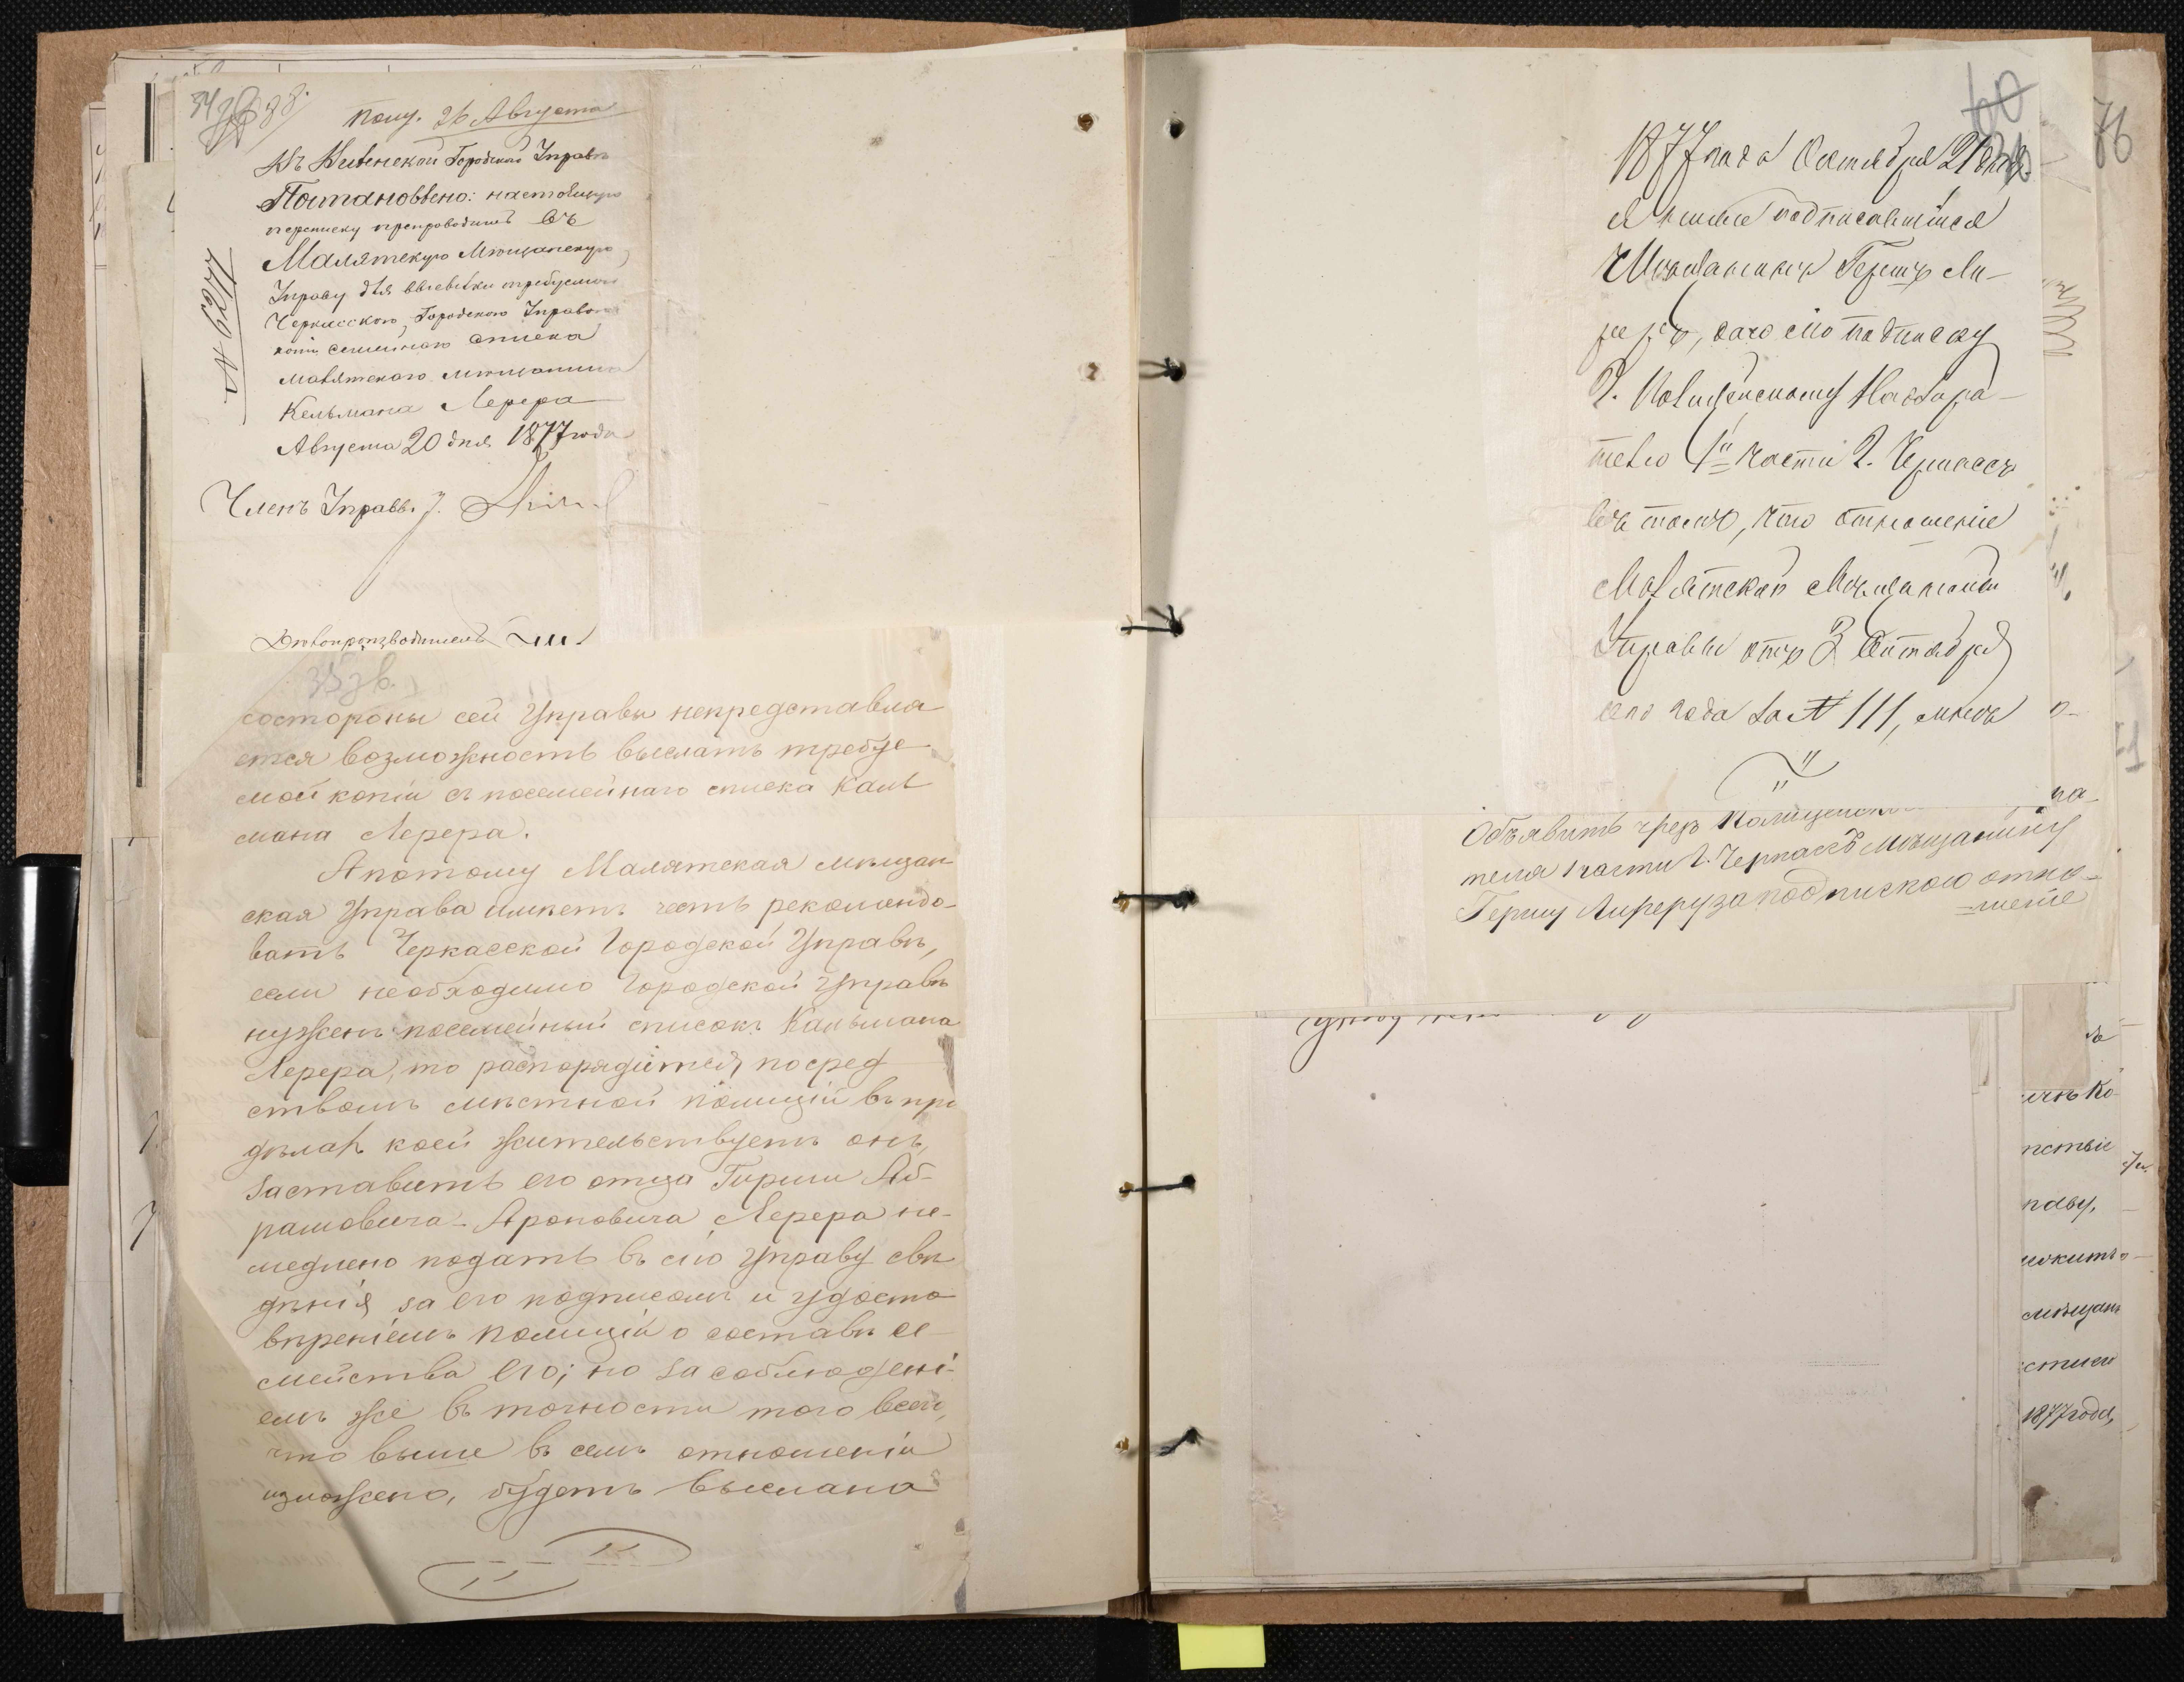 34 зв 38.
Получ. 26 Августа
Въ Виленской Городской Управѣ
Постановлено: настоящую
переписку препроводить въ
Малятскую Мѣщанскую
Управу для высылки требуемой
Черкасскою Городскою Управою
копіи семейнаго списка
малятскаго мѣщанина
Кельмана Лерера
Августа 20 дня 1877 года
№ 6277
Членъ Управы
Дѣлопроизводитель
35 зв.
состороны сей Управы непредставля
ется возможность выслать требуе
мой копіи съ посемейнаго списка Каль
мана Лерера.
Апотому Малятская мѣщан
ская Управа имѣетъ честь рекомендо-
вать Черкасской Городской Управѣ,
если необходимо Городской Управѣ
нуженъ посемейный списокъ Кальмана
Лерера, то распорядится посред
ствомъ мѣстной полиціи въ пре
дѣлах коей жительствуетъ онъ,
заставить его отца Гирши Аб-
рамовича-Ароновича Лерера не-
медлено подать въ сію Управу свѣ
дѣнія за его подписомъ и удосто
вѣреніемъ полиціи о составѣ се
мейства его; по за соблюдені-
емъ же въ точности того всего,
что выше въ семъ отношеніи
изложено, будетъ выслана
60
76
1877 года Октября 21 дня
Я ниже подписавшійся
Мѣщанинъ Гершъ Ли-
реръ, даю сію подписку
Г. Полицейскому Надзира-
телю 1й части Г. Черкассъ
въ томъ, что отношеніе
Малятской Мѣщанской
Управы отъ 3 Октября
сего года за № 111, мнѣ
Объявить чрезъ Полицейска
теля 1 части Г. Черкассъ мѣщанину
Гершу Лиреру за подпискою отно-
-шеніе
о-
на-
пстви
праву,
мѣщан
1877 года,